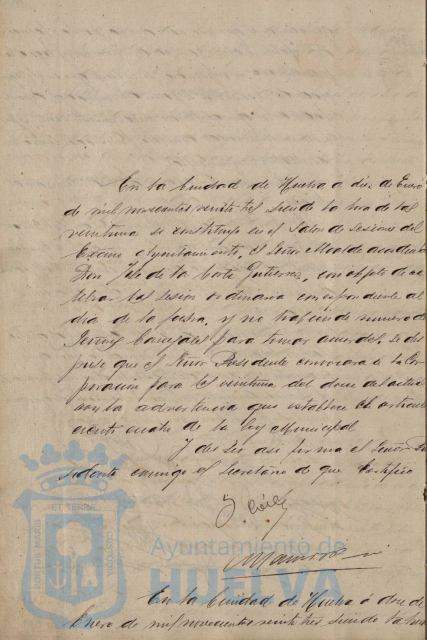 En la Ciudad de Huelva a diez de Enero
de mil novecientos veinte tres siendo la hora de las
veintiuna se constituyó en el Salon de Sesiones del
Excmo Ayuntamiento, el Señor Alcalde accidental
Don José de la Corte Gutierrez, con objeto de ce-
lebrar la sesión ordinaria correspondiente al
dia de la fecha, y no habiendo numero de
Señores Concejales para tomar acuerdos, se dis-
puso que el Señor Presidente convocara a la Cor-
poración para las veintiuna del doce del actual
con la advertencia que establece el articulo
ciento cuatro de la ley Municipal
Y de ser asi firma el Señor Pre-
sidente conmigo el Secretario de que Certifico
J. Corte
PORTUS MARIS
ET TERRAE
CUSTODIA
Ayuntamiento de
HUELVA
En la Ciudad de Huelva á doce de
Enero de mil novecientos veinte tres siendo la hora